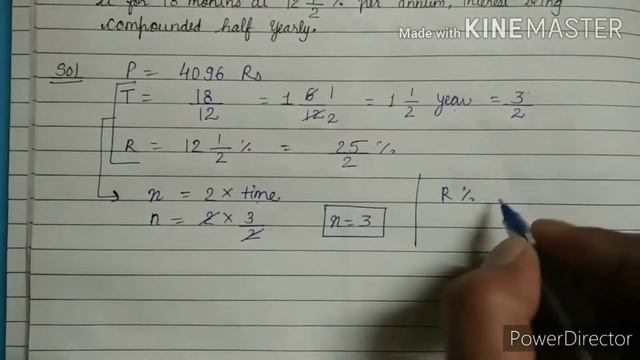 it for 18 months at 12 1/2 % per annum, interest being
compounded half yearly.
Made with KINEMASTER
Sol P = 4096 Rs
T = 18/12 = 1 6/12 1/2 = 1 1/2 year = 3/2
R = 12 1/2 % = 25/2 %
n = 2 × time
n = 2 × 3/2 n = 3
R %
PowerDirector